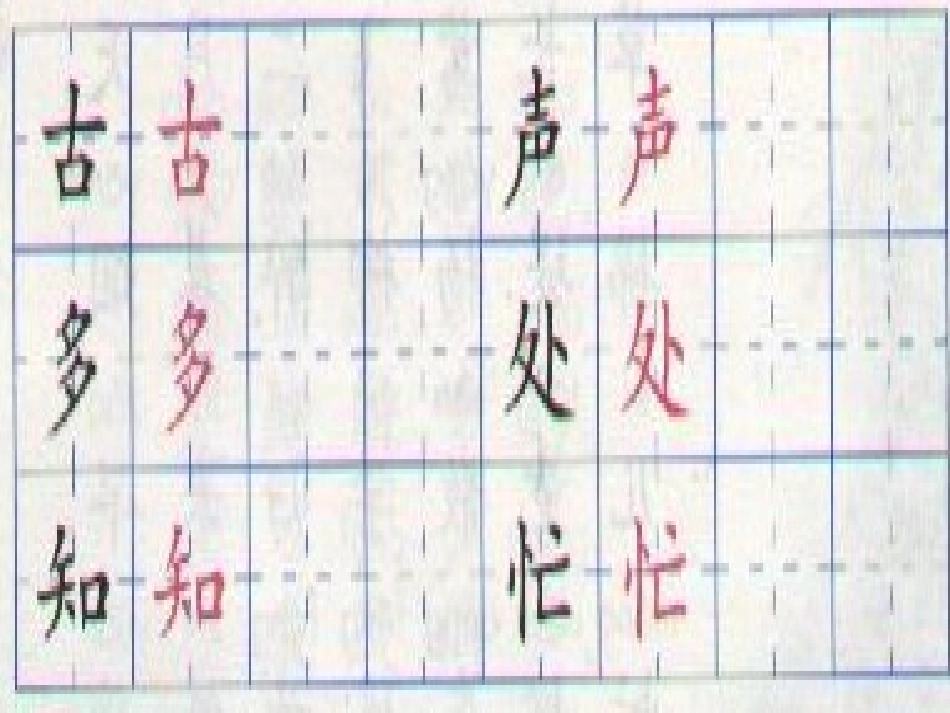 古 古 声 声
多 多 处 处
知 知 忙 忙